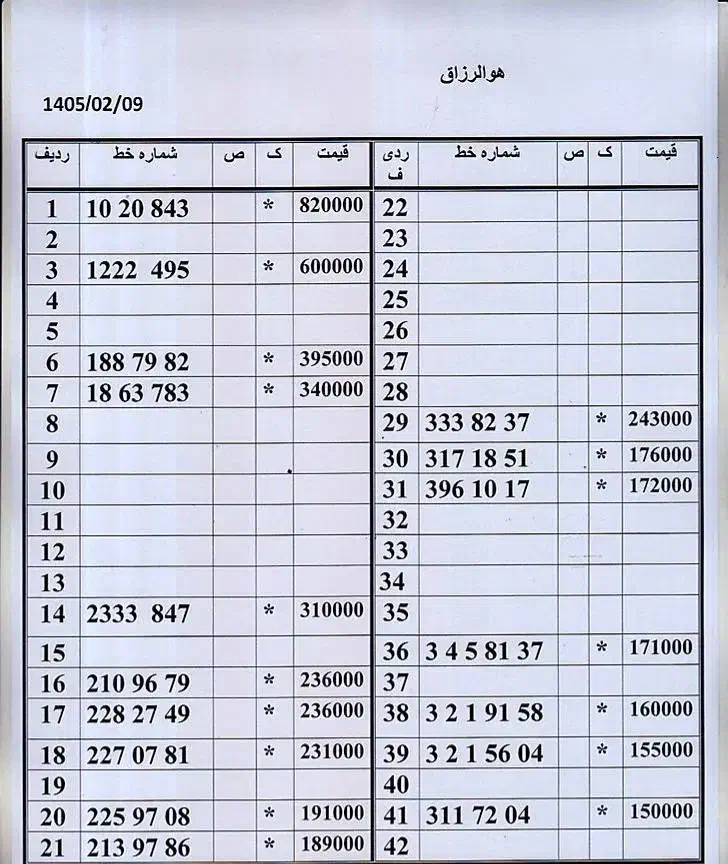 هوالرزاق
1405/02/09
ردیف شماره خط ص ک قیمت ردیف شماره خط ص ک قیمت
1 10 20 843 * 820000 22
2 23
3 1222 495 * 600000 24
4 25
5 26
6 188 79 82 * 395000 27
7 18 63 783 * 340000 28
8 29 333 82 37 * 243000
9 30 317 18 51 * 176000
10 31 396 10 17 * 172000
11 32
12 33
13 34
14 2333 847 * 310000 35
15 36 3 4 5 81 37 * 171000
16 210 96 79 * 236000 37
17 228 27 49 * 236000 38 3 2 1 91 58 * 160000
18 227 07 81 * 231000 39 3 2 1 56 04 * 155000
19 40
20 225 97 08 * 191000 41 311 72 04 * 150000
21 213 97 86 * 189000 42